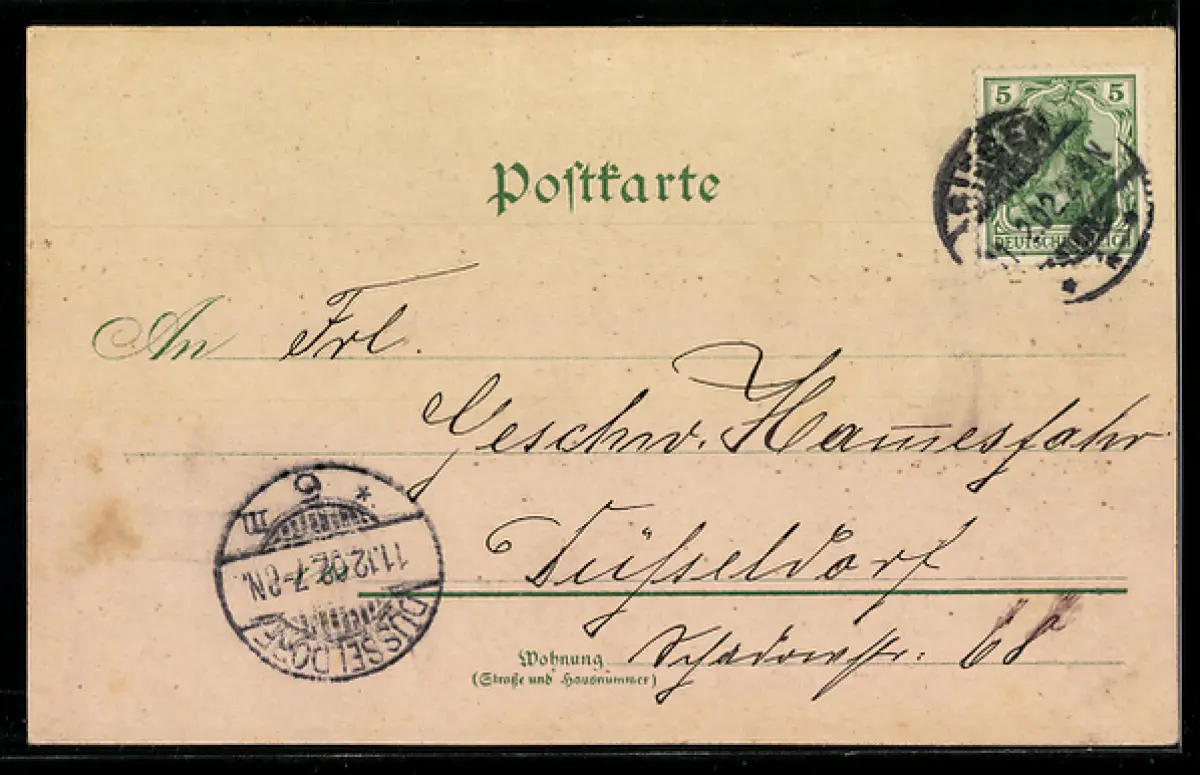 Postkarte
5 5
DEUTSCHES REICH
02
An Frl.
Geschw. Ham̅esfahr
Düsseldorf
Wohnung Schadowstr: 68
(Straße und Hausnummer)
DÜSSELDORF
11.12.02.7-8N.